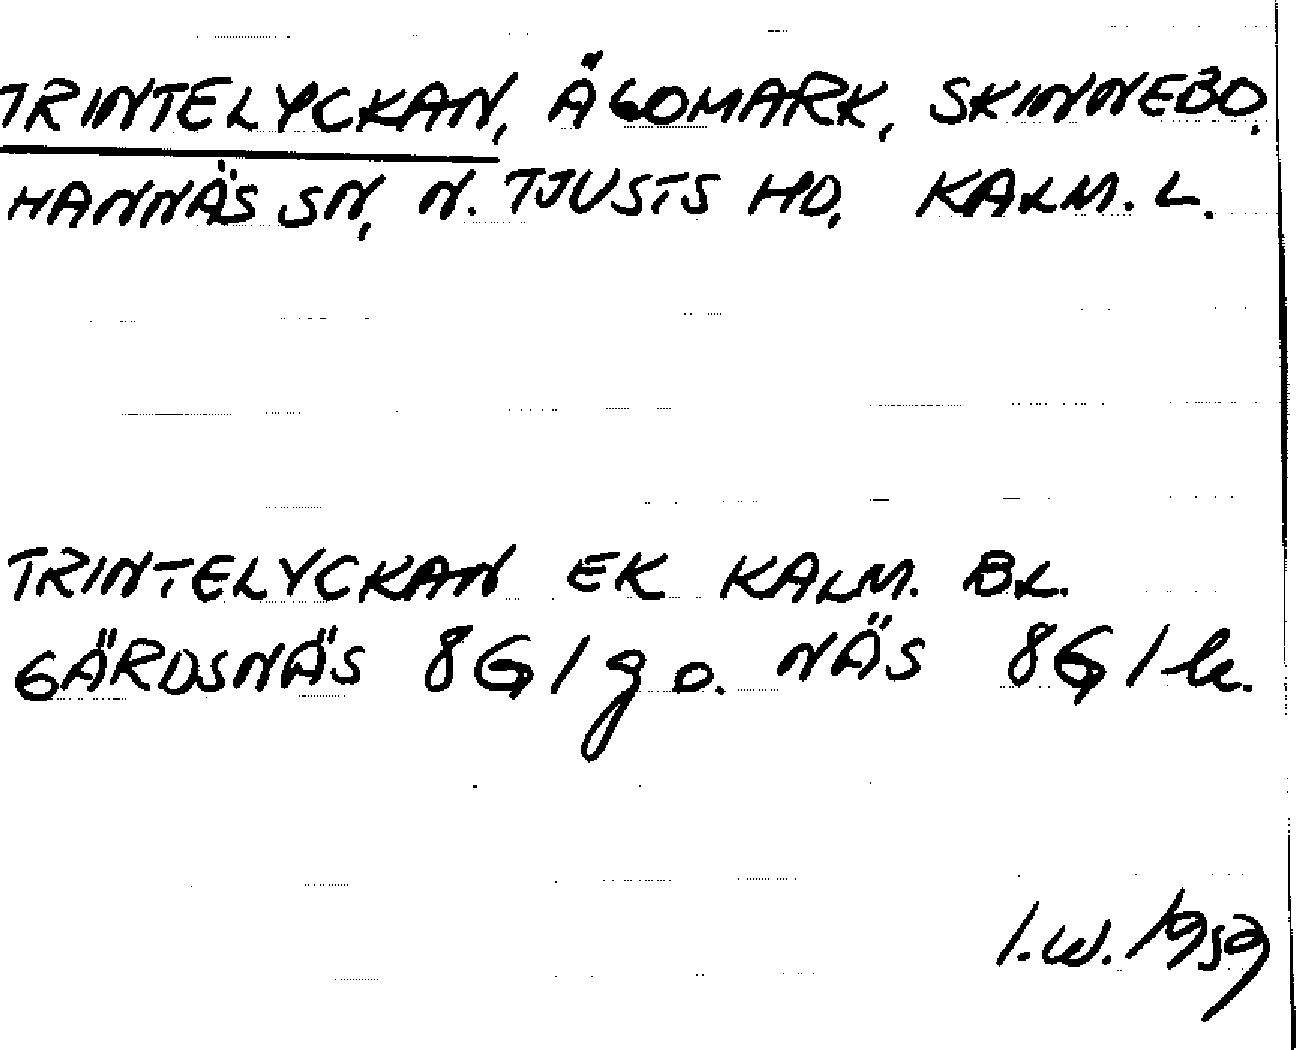 TRINTELYCKAN, ÄGOMARK, SKINNEBO,
HANNÄS SN, N. TJUSTS HD, KALM. L.
TRINTELYCKAN EK KALM. BL.
GÄRDSNÄS 8G/go. NÄS 8G/le.
I.W. 1959